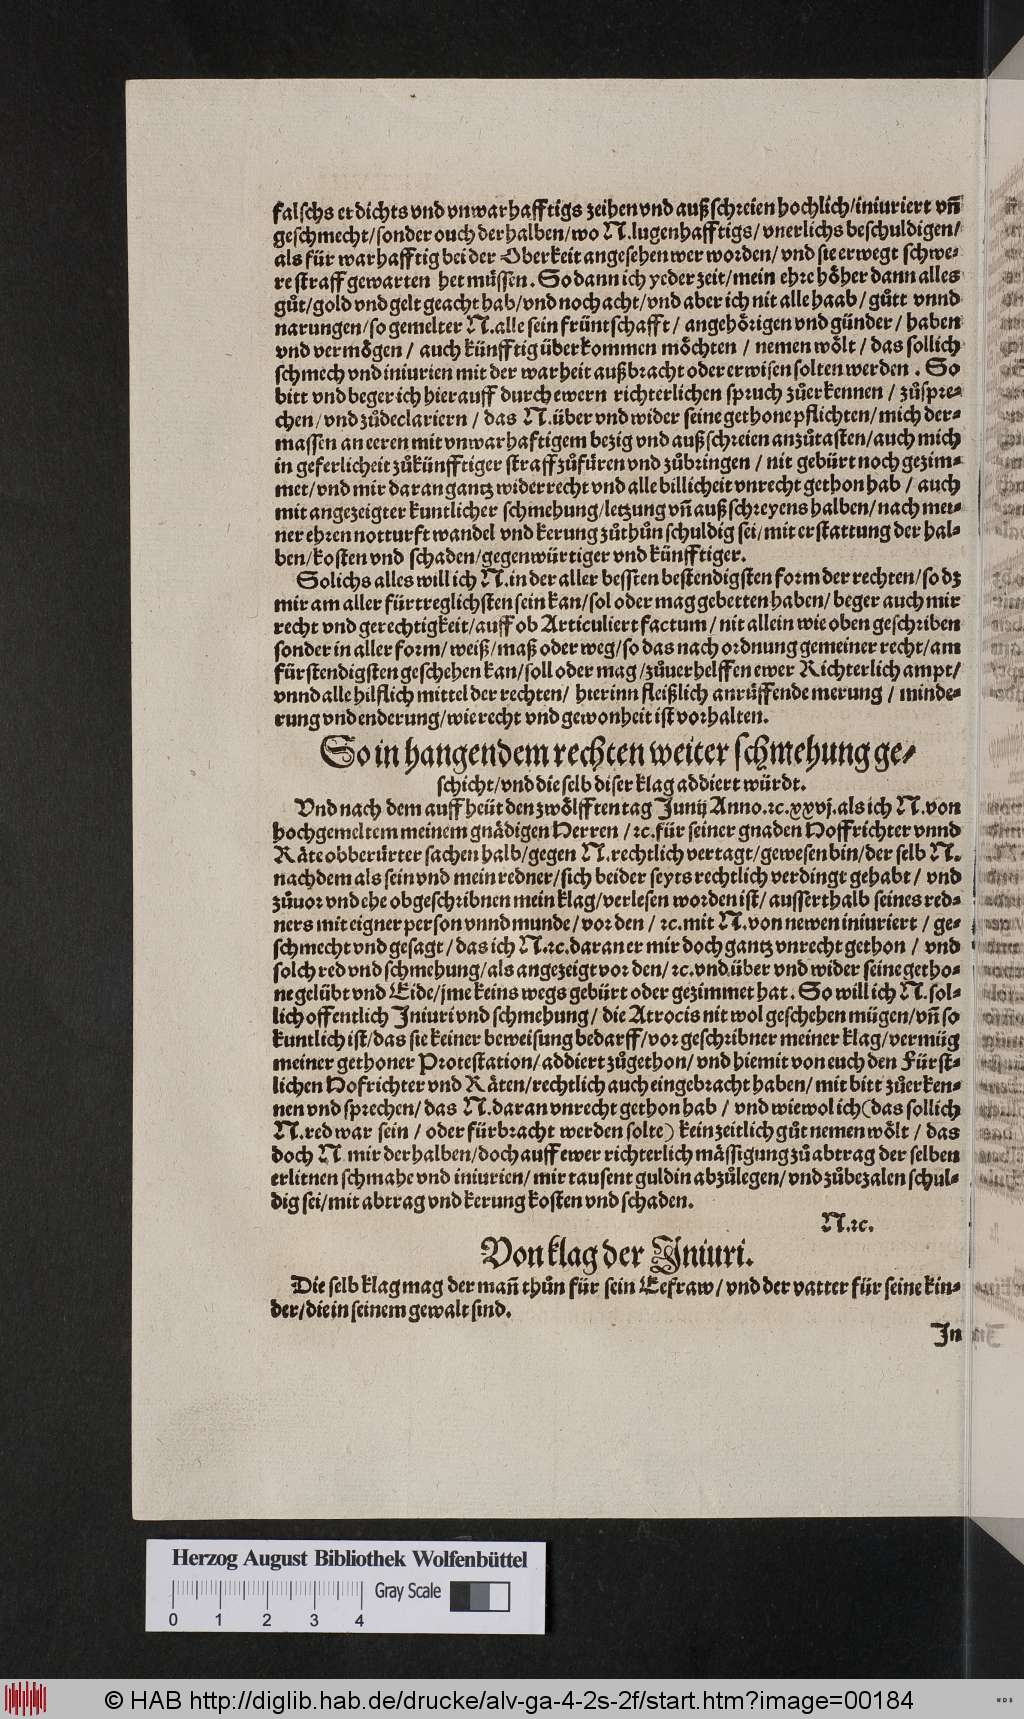 falschs erdichts vnd vnwarhafftigs zeihen vnd außschreien hochlich/iniuriert vñ
geschmecht/sonder ouch derhalben/wo N.lugenhafftigs/vnerlichs beschuldigen/
als für warhafftig bei der Oberkeit angesehen wer worden/vnd sie erwegt schwe-
re straff gewarten het müssen. So dann ich yeder zeit/mein ehre höher dann alles
gůt/gold vnd gelt geacht hab/vnd noch acht/vnd aber ich nit alle haab/gůtt vnnd
narungen/so gemelter N.alle sein früntschafft/ angehörigen vnd günder/ haben
vnd vermögen/ auch künfftig überkommen möchten/ nemen wölt/ das sollich
schmech vnd iniurien mit der warheit außbracht oder erwisen solten werden. So
bitt vnd beger ich hierauff durch ewern richterlichen spruch zůerkennen/ zůspre-
chen/vnd zůdeclariern/ das N.über vnd wider seine gethone pflichten/mich der-
massen an eeren mit vnwarhaftigem bezig vnd außschreien anzůtasten/auch mich
in geferlicheit zůkünfftiger straff zůfüren vnd zůbringen/ nit gebürt noch gezim-
met/vnd mir daran gantz widerrecht vnd alle billicheit vnrecht gethon hab/ auch
mit angezeigter kuntlicher schmehung/letzung vñ außschreyens halben/nach mei-
ner ehren notturft wandel vnd kerung zůthůn schuldig sei/mit erstattung der hal-
ben/kosten vnd schaden/gegenwürtiger vnd künfftiger.
Solichs alles will ich N.in der aller bessten bestendigsten form der rechten/so dz
mir am aller fürtreglichsten sein kan/sol oder mag gebetten haben/beger auch mir
recht vnd gerechtigkeit/auff ob Articuliert factum/nit allein wie oben geschriben
sonder in aller form/weiß/maß oder weg/so das nach ordnung gemeiner recht/am
fürstendigsten geschehen kan/soll oder mag/zůuerhelffen ewer Richterlich ampt/
vnnd alle hilflich mittel der rechten/ hierinn fleißlich anrüffende merung/ minde-
rung vnd enderung/wie recht vnd gewonheit ist vorhalten.
So in hangendem rechten weiter schmehung ge-
schicht/vnd die selb diser klag addiert würdt.
Vnd nach dem auff heüt den zwölfften tag Junij Anno.ꝛc.xxvj.als ich N.von
hochgemeltem meinem gnädigen Herren/ꝛc.für seiner gnaden Hoffrichter vnnd
Räte obberürter sachen halb/gegen N.rechtlich vertagt/gewesen bin/der selb N.
nachdem als sein vnd mein redner/sich beider seyts rechtlich verdingt gehabt/ vnd
zůuor vnd ehe obgeschribnen mein klag/verlesen worden ist/ausserthalb seines red-
ners mit eigner person vnnd munde/vor den/ꝛc.mit N.von newen iniuriert/ ge-
schmecht vnd gesagt/das ich N.ꝛc.daran er mir doch gantz vnrecht gethon/ vnd
solch red vnd schmehung/als angezeigt vor den/ꝛc.vnd über vnd wider seine getho-
ne gelübt vnd Eide/jme keins wegs gebürt oder gezimmet hat. So will ich N.sol-
lich offentlich Iniuri vnd schmehung/ die Atrocis nit wol geschehen mügen/vñ so
kuntlich ist/das sie keiner beweisung bedarff/vorgeschribner meiner klag/vermüg
meiner gethoner Protestation/addiert zůgethon/vnd hiemit von euch den Fürst-
lichen Hofrichter vnd Räten/rechtlich auch eingebracht haben/mit bitt zůerken-
nen vnd sprechen/das N.daran vnrecht gethon hab/ vnd wiewol ich(das sollich
N.red war sein/ oder fürbracht werden solte) kein zeitlich gůt nemen wölt/ das
doch N.mir derhalben/doch auff ewer richterlich mässigung zů abtrag der selben
erlitnen schmahe vnd iniurien/mir tausent guldin abzůlegen/vnd zůbezalen schul-
dig sei/mit abtrag vnd kerung kosten vnd schaden.
N.ꝛc.
Von klag der Iniuri.
Die selb klag mag der mañ thůn für sein Eefraw/vnd der vatter für seine kin-
der/die in seinem gewalt sind.
In
Herzog August Bibliothek Wolfenbüttel
Gray Scale
0 1 2 3 4
© HAB http://diglib.hab.de/drucke/alv-ga-4-2s-2f/start.htm?image=00184